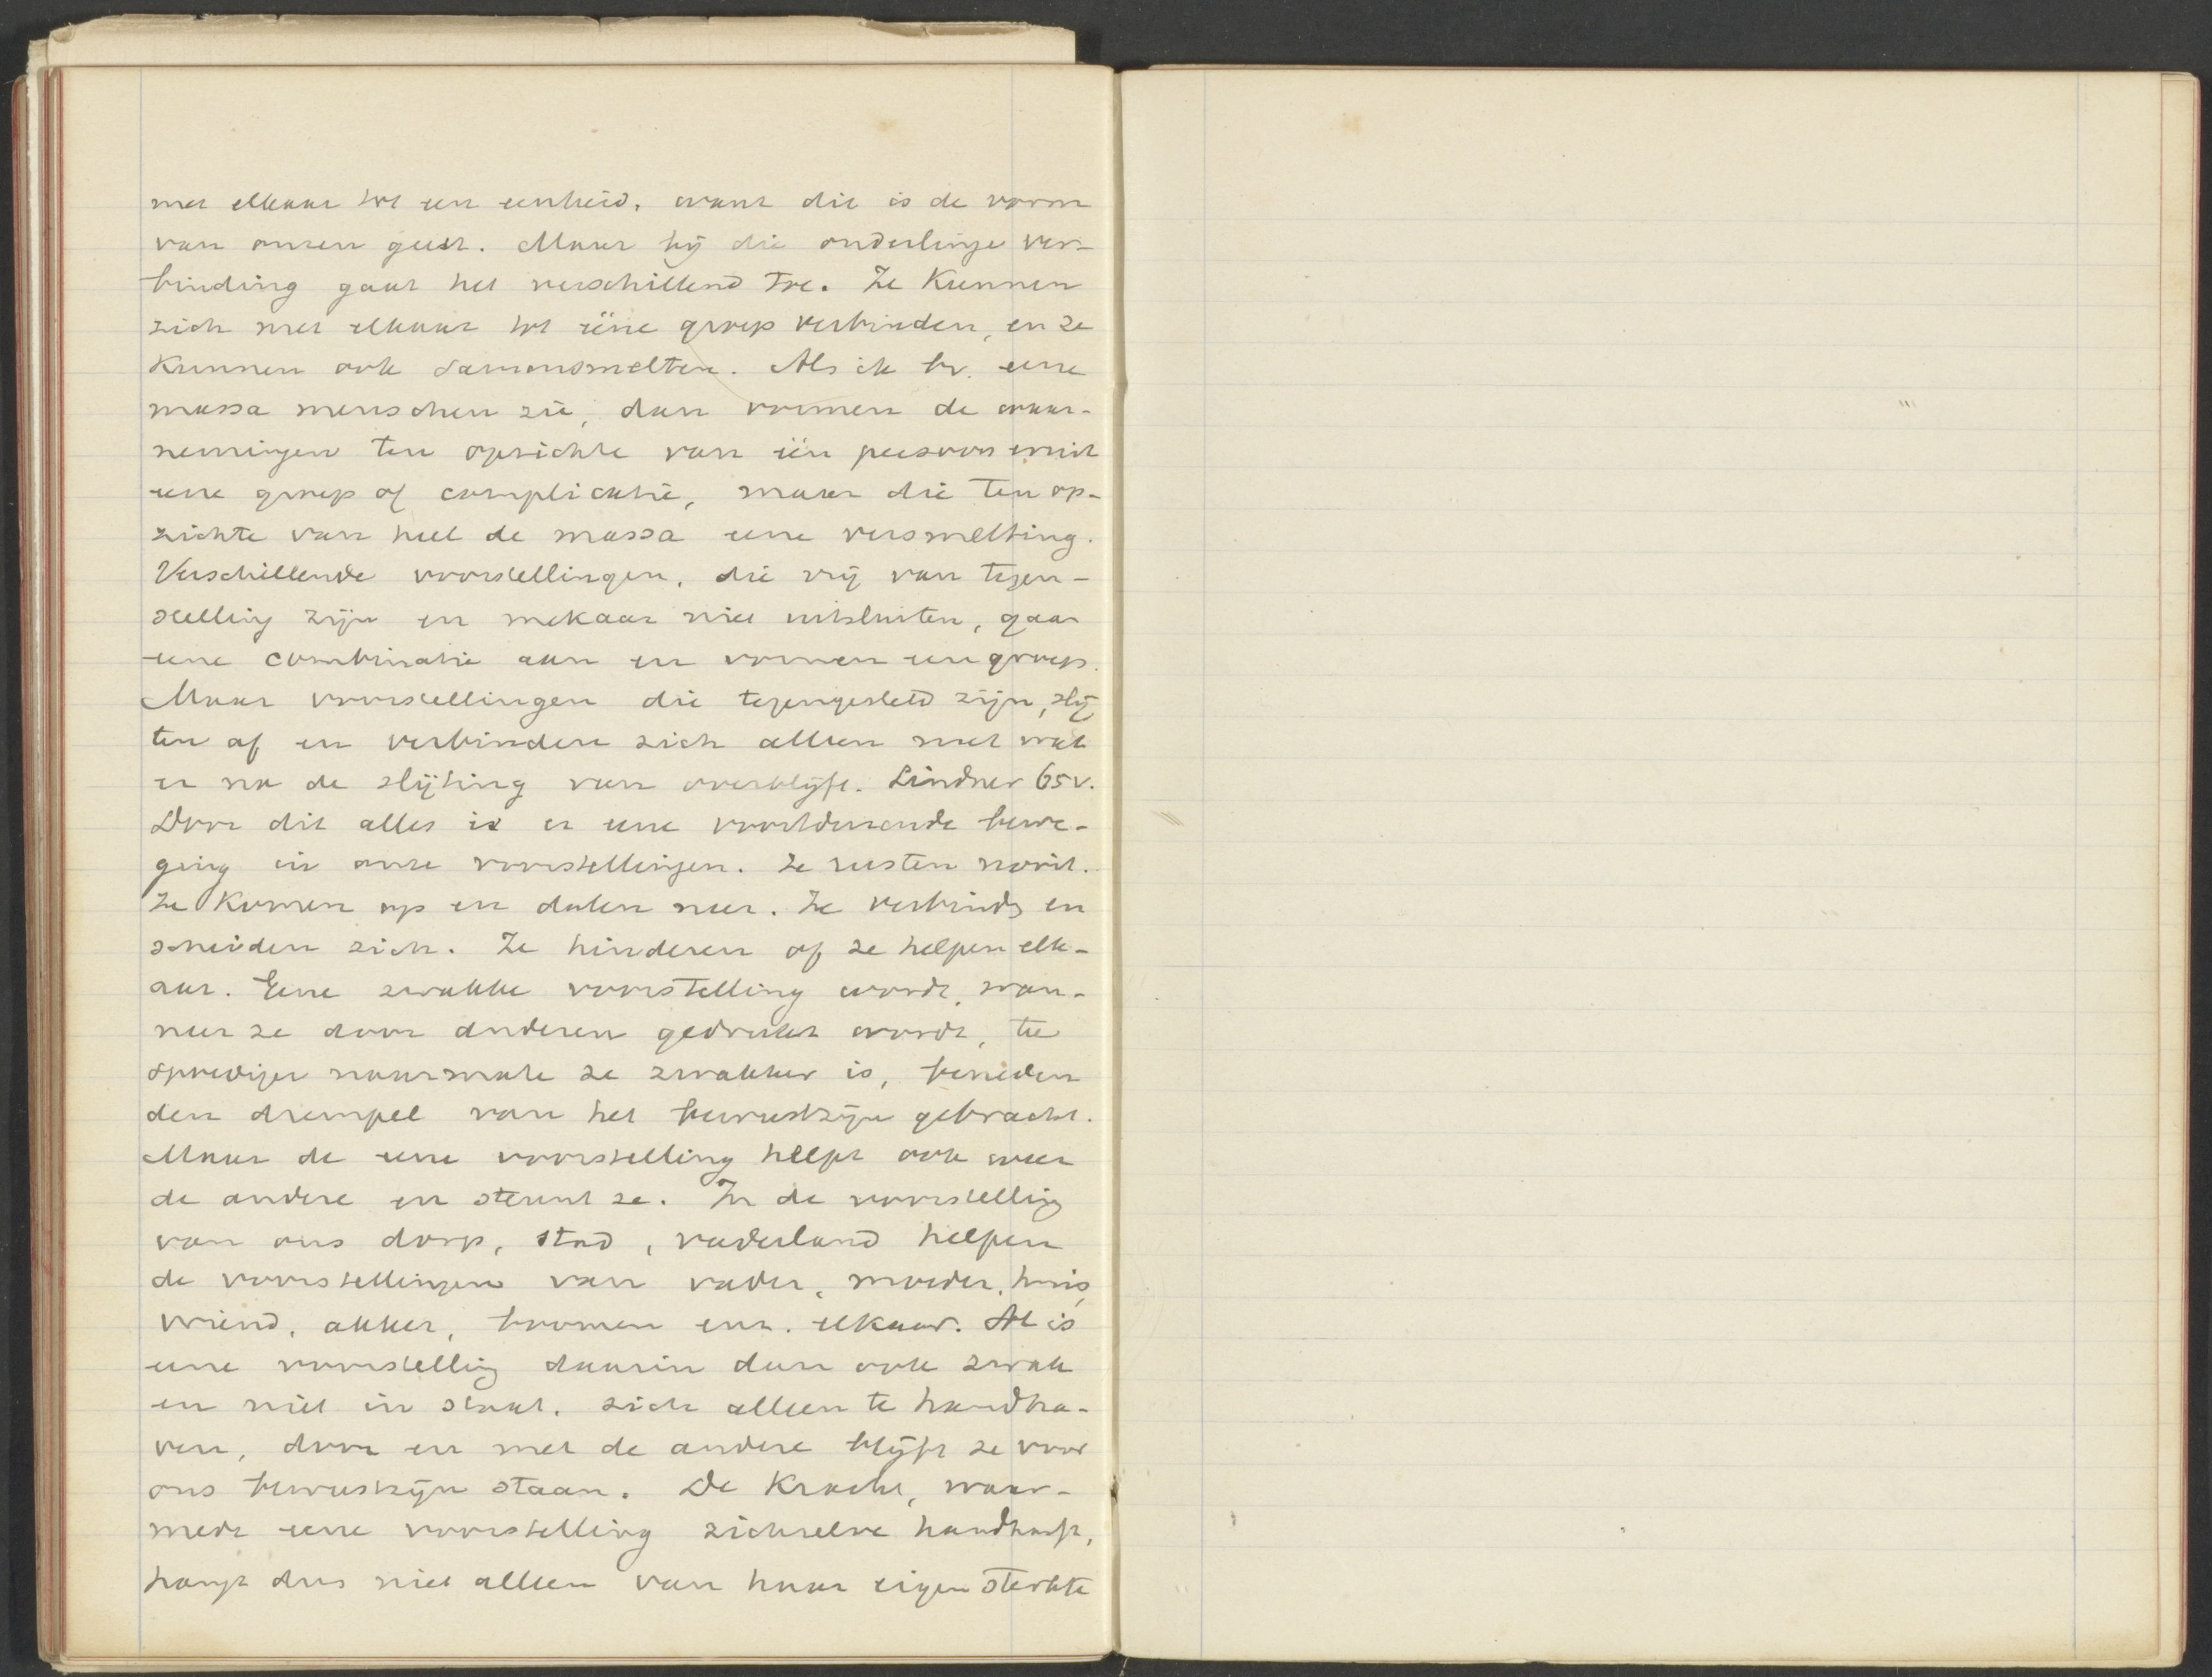 met elkaar tot een eenheid, want dit is de vorm
van onzen geest. Maar bij die onderlinge ver-
binding gaat het verschillend toe. Ze kunnen
zich met elkaar tot ééne groep verbinden, en ze
kunnen ook samensmelten. Als ik bv. eene
massa menschen zie, dan vormen de waar-
nemingen ten opzichte van één persoon
eene groep of complicatie, maar die ten op-
zichte van heel de massa eene versmelting.
Verschillende voorstellingen, die vrij van tegen-
stelling zijn en mekaar niet uitsluiten, gaan
eene combinatie aan en vormen een groep.
Maar voorstellingen die tegengesteld zijn, slij
ten af en verbinden zich alleen met wat
er na de slijting van overblijft. Lindner 65v.
Door dit alles is er eene voortdurende bewe-
ging in onze voorstellingen. Ze rusten nooit.
Ze komen op en dalen neer. Ze verbinden en
scheiden zich. Ze hinderen of ze helpen elk-
aar. Eene zwakke voorstelling wordt, wan-
neer ze door anderen gedrukt wordt, te
spoediger naarmate ze zwakker is, beneden
den drempel van het bewustzijn gebracht.
Maar de eene voorstelling helpt ook weer
de andere en steunt ze. In de voorstelling
van ons dorp, stad, vaderland helpen
de voorstellingen van vader, moeder, huis,
vriend, akker, boomen enz. elkaar. Al is
eene voorstelling daarin dan ook zwak
en niet in staat, zich alleen te handha-
ven, door en met de andere blijft ze voor
ons bewustzijn staan. De kracht, waar-
mede eene voorstelling zichzelve handhaaft,
hangt dus niet alleen van haar eigen sterkte